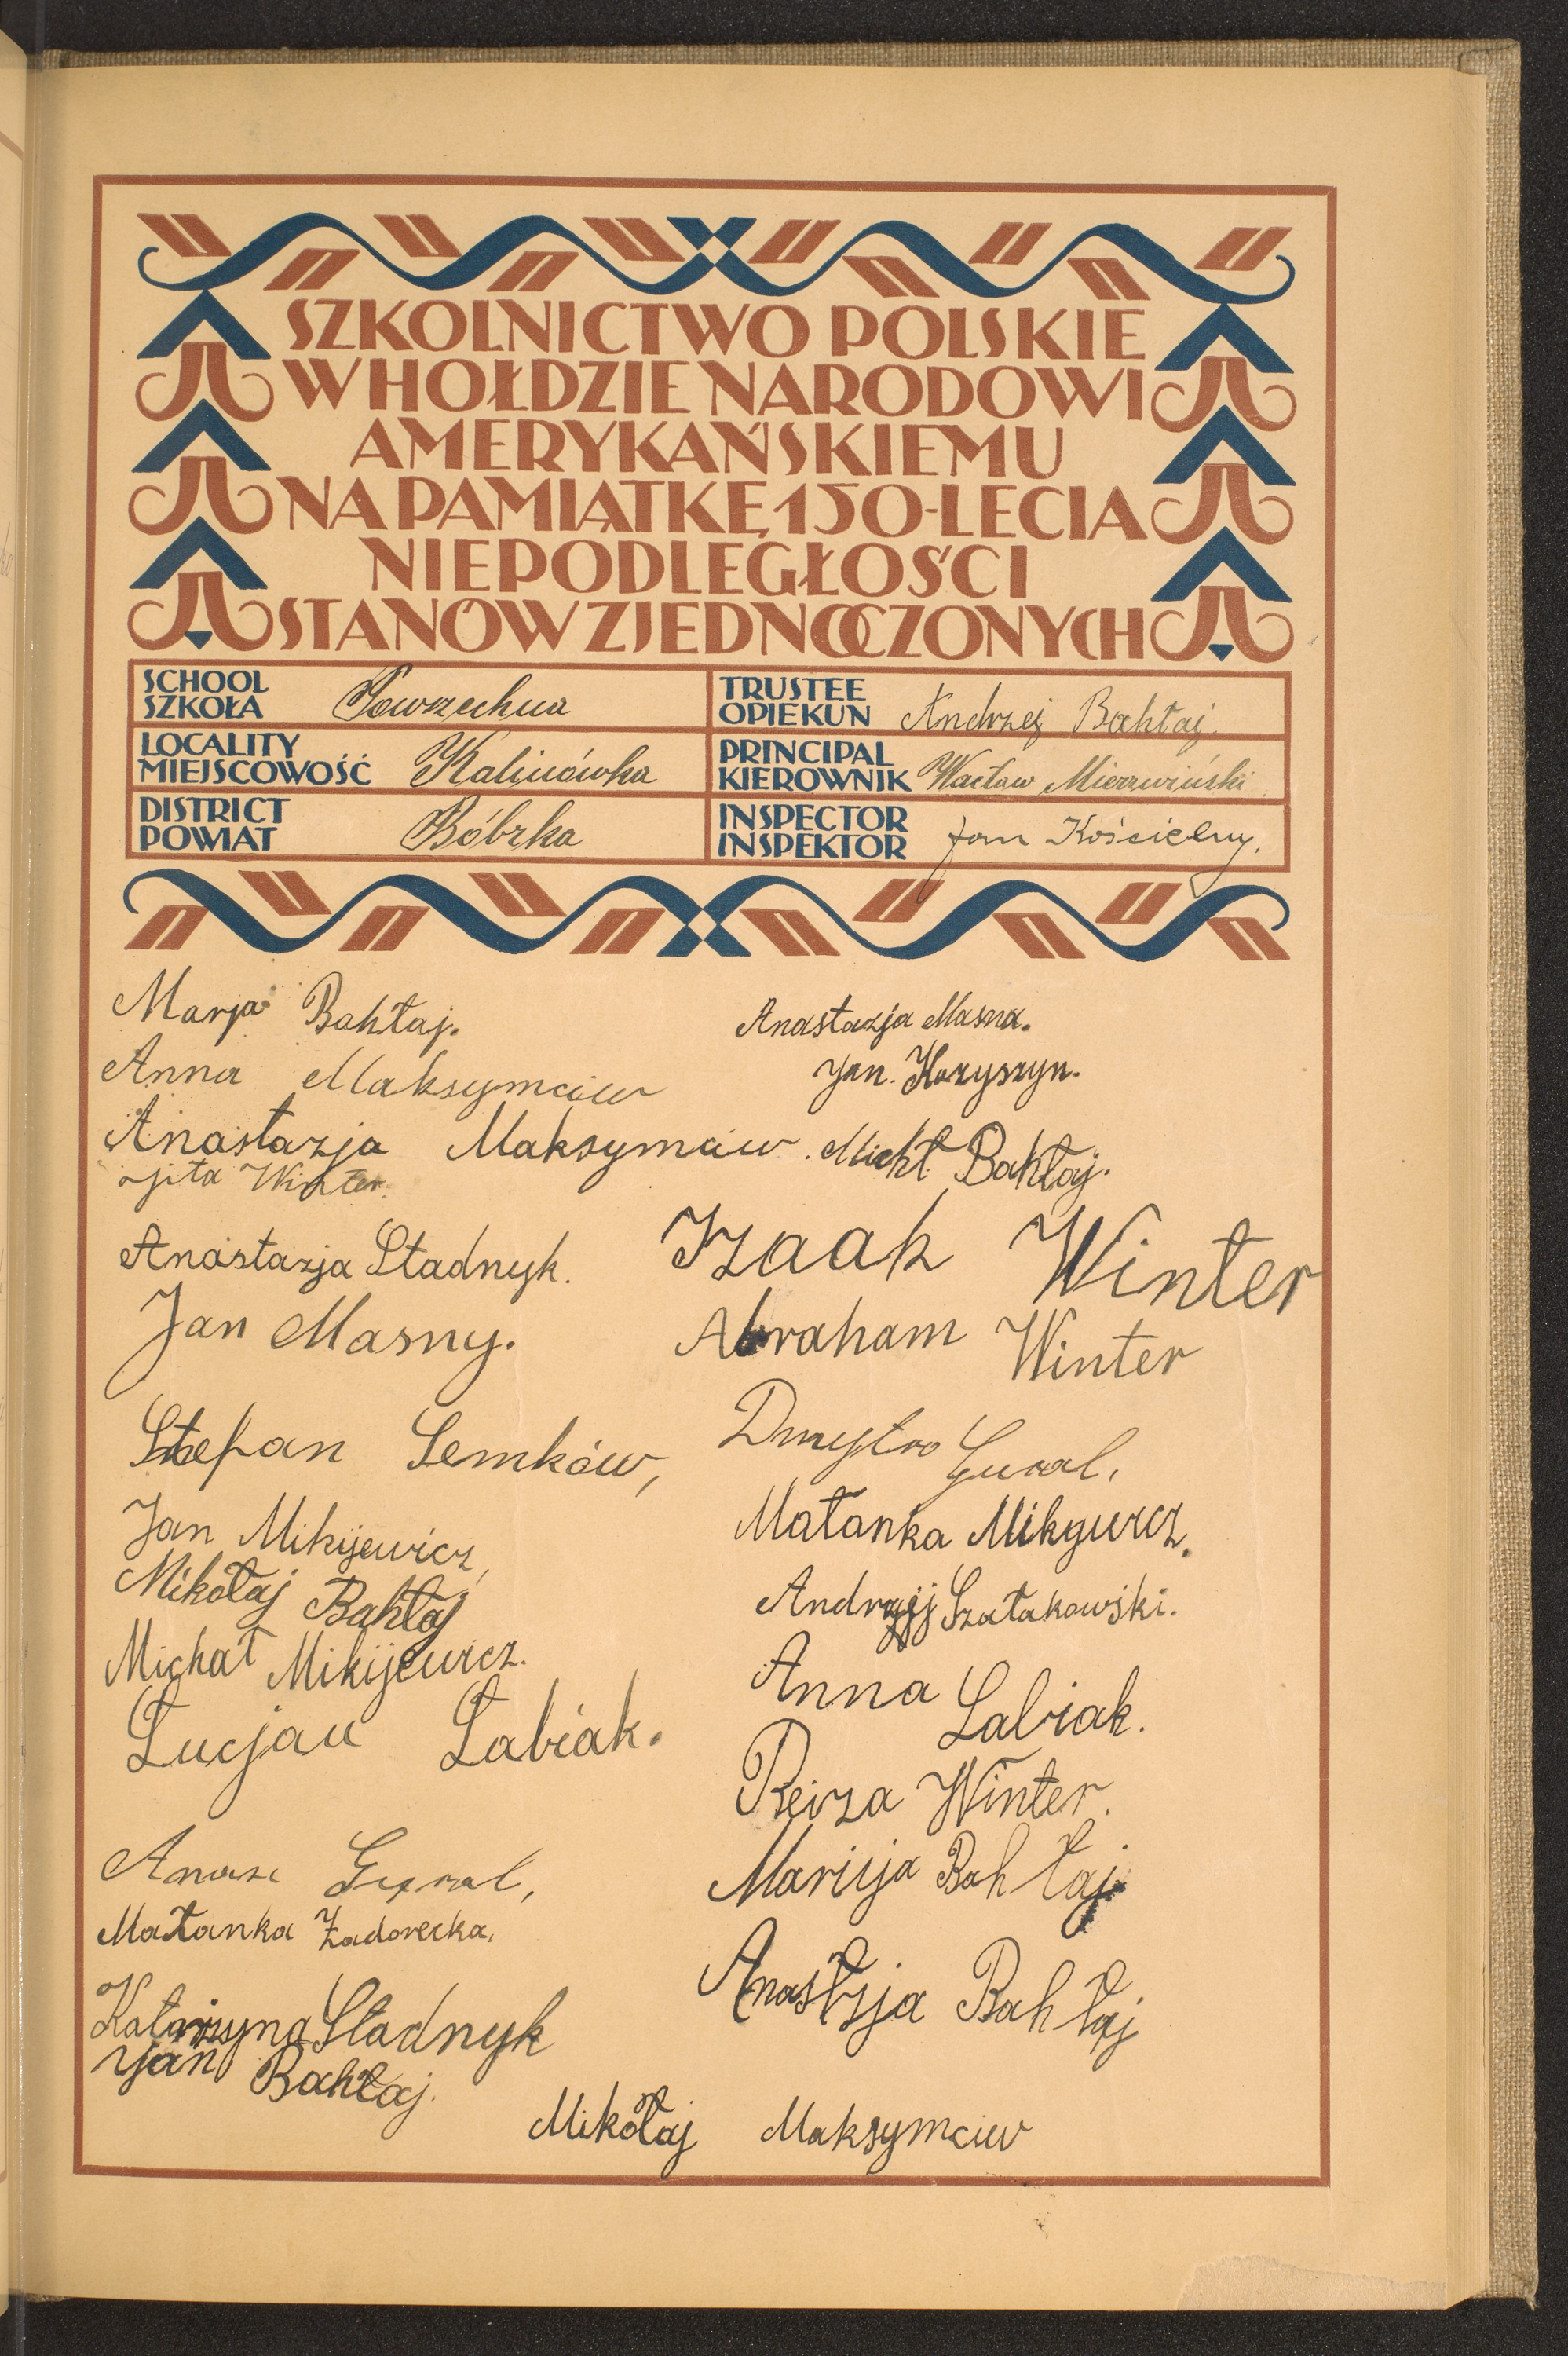 SZKOLNICTWO POLSKIE
W HOŁDZIE NARODOWI
AMERYKAŃSKIEMU
NA PAMIĄTKĘ 150-LECIA
NIEPODLEGŁOŚCI
STANÓW ZJEDNOCZONYCH
SCHOOL
SZKOŁA Powszechna
LOCALITY
MIEJSCOWOŚĆ Kalinówka
DISTRICT
POWIAT Bóbrka
TRUSTEE
OPIEKUN Andrzej Bahłaj.
PRINCIPAL
KIEROWNIK Wacław Mierzwiński
INSPECTOR
INSPEKTOR Jan Kościelny.
Marja Bahłaj.
Anna Maksymciw
Anastazja Maksymciw.
Winter.
Anastazja Stadnyk.
Jan Masny.
Stefan Semków,
Jan Mikijewicz,
Mikołaj Bahłaj
Michał Mikijewicz.
Łucjan Łabiak.
Gural,
Małanka Zadorecka.
Katarzyna Stadnyk
Jan Bahłaj.
Anastazja Masna.
Jan. Horyszyn.
Michł Bahłaj.
Izaak Winter
Abraham Winter
Dmytro Gural,
Małanka Mikgwicz.
Andrzej Szałakowski.
Anna Łabiak.
Reiza Winter.
Marija Bahłaj
Anastzja Bahłaj
Mikołaj Maksymciw